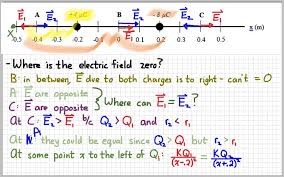 E₁ A E₂ +4 μC B E₂ -8 μC E₂ C E₁
E₁
x (m)
-0.5 -0.4 -0.3 -0.2 -0.1 0 0.1 0.2 0.3 0.4 0.5
-Where is the electric field zero?
B: in between, E due to both charges is to right - can't = 0
A: E are opposite
C: E are opposite } Where can E₁ = E₂?
At C: E₂ > E₁ b/c Q₂ > Q₁ and r₂ < r₁
At A they could be equal since Q₂ > Q₁ but r₂ > r₁
At some point x to the left of Q₁: KQ₁/(x-.2)² = KQ₂/(x+.2)²